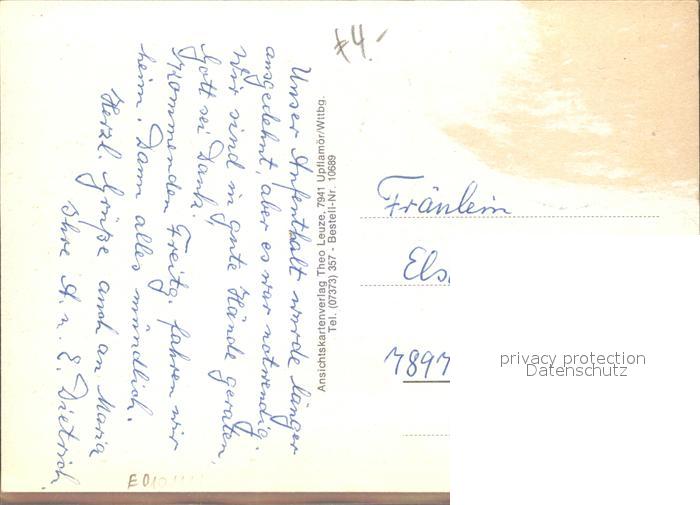 Unser Aufenthalt wurde länger
ausgedehnt, aber es war notwendig.
Wir sind in gute Hände geraten,
Gott sei Dank.
Kommenden Freitg. fahren wir
heim. Dann alles mündlich.
Herzl. Grüße auch an Maria
Ihre A. u. E. Dietrich.
Ansichtskartenverlag Theo Leuze, 7941 Upflamör/Wttbg.
Tel. (07373) 357 - Bestell-Nr. 10689
Fräulein
Els
7897
privacy protection
Datenschutz